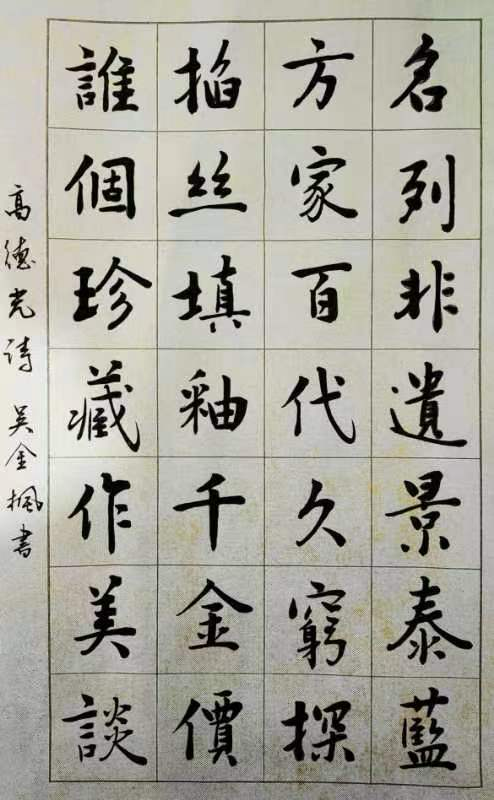 名列非遺景泰藍
方家百代久窮探
掐丝填釉千金價
誰個珍藏作美談
高德光诗 吴金楓書